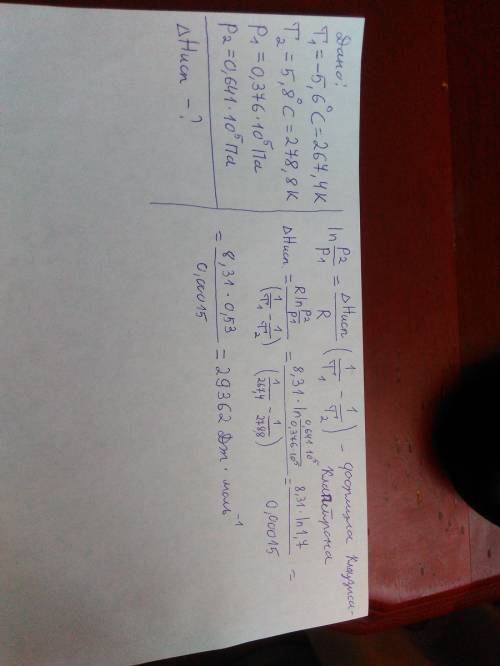 Дано:
T₁ = -5,6°C = 267,4 К
T₂ = 5,8°C = 278,8 К
P₁ = 0,376·10⁵ Па
P₂ = 0,641·10⁵ Па
ΔHисп - ?
ln P₂/P₁ = ΔHисп/R (1/T₁ - 1/T₂) - формула Клаузиса-
Клапейрона
ΔHисп = R ln P₂/P₁ / (1/T₁ - 1/T₂) = 8,31·ln 0,641·10⁵/0,376·10⁵ / (1/267,4 - 1/278,8) = 8,31·ln1,7 / 0,00015 =
= 8,31·0,53 / 0,00015 = 29362 Дж·моль⁻¹